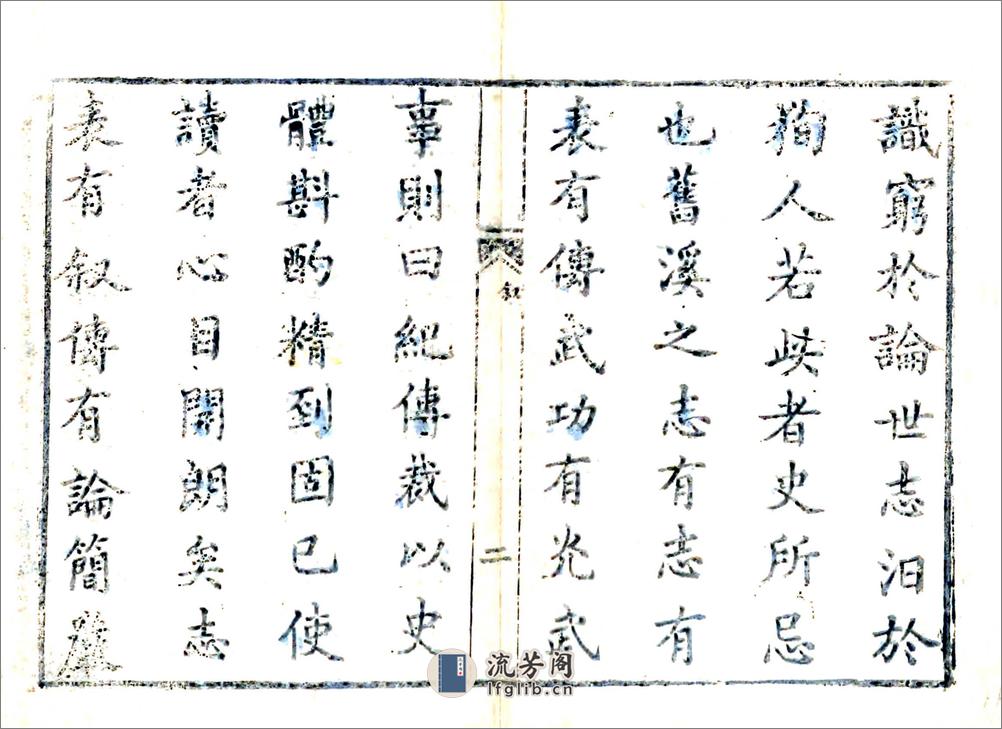 識窮於論世志汩於
狥人若者史所忌
也舊溪之志有志有
表有傳武功有兆武
叙
二
事則曰紀傳裁以史
體斟酌精到固已使
讀者心目開朗矣志
表有叙傳有論簡嚴
流芳阁
lfglib.cn